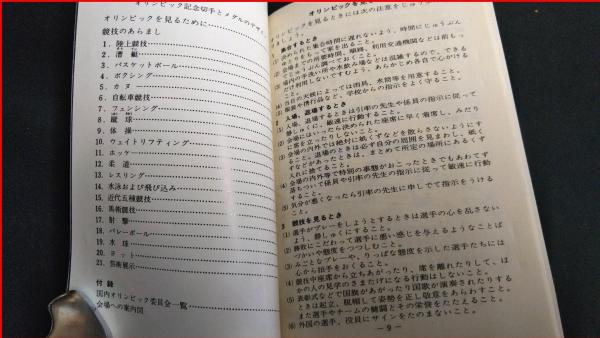 オリンピック記念切手とメダルのデザイ
オリンピックを見るために
競技のあらまし
1. 陸上競技
2. 漕艇
3. バスケットボール
4. ボクシング
5. カヌ
6. 自転車競技
7. フェンシング
8. 蹴球
9. 体操
10. ウェイトリフティング
11. ホッケー
12. 柔道
13. レスリング
14. 水泳および飛び込み
15. 近代五種競技
16. 馬術競技
17. 射撃
18. バレーボール
19. 水球
20. ヨット
21. 芸術展示
付録
国内オリンピック委員会一覧
会場への案内図
オリンピックを見る
オリンピックを見るときには次の注意をしっ
ましょう。
集合するとき
(1) 決められた集合時間に遅れないよう、時間にじゅうぶん
ゆとりをもって家を出ること。
(2) 会場までの所要時間、順路、利用交通機関などは前も
ってよく調べておくこと。
(3) 場内の手洗い所や水飲み場などは混雑するので、できる
だけ利用しないですむよう、あらかじめ各自で心がける
こと。
(4) 当日の天候によっては雨具、水筒等を用意すること。
(5) 服装や携行品など、学校からの指示をよく守ること。
2 入場、退場するとき
(1) 入場、退場するときは引率の先生や係員の指示に従って
静しゅくに、敏速に行動すること。
(2) 会場にはいったら決められた座席に早く着席し、みだり
に席を立ったりしないこと。
(3) 会場の内外では絶対に紙くずなどを散らさないようにす
ること。退場のときは必ず自分の周囲を見まわし、紙く
ずなどがあったときは、まとめて所定の場所にあるくず
入れに捨てること。
(4) 会場の内外等で特別の事態がおこったときでもあわてず
落ちついて係員や引率の先生の指示に従って敏速に行動
すること。
(5) 気分が悪くなったら引率の先生に申しでて指示をうける
こと。
3 競技を見るとき
(1) 選手がプレーをしようとするときは選手の心を乱さない
よう、静しゅくにすること。
(2) 勝敗にこだわって選手に悪い感じを与えるようなことば
づかいや態度をつつしむこと。
(3) みごとなプレーや、りっぱな態度を示した選手たちには
心から拍手をおくること。
(4) 競技中座席から立ちあがったり、席を離れたりして、ほ
かの人の見学のさまたげになる行動はしないこと。
(5) 表彰式などで国旗があがったり国歌が演奏されたりする
ときは起立、脱帽して姿勢を正し敬意をあらわすこと。
また選手やチームの健闘とその栄誉をたたえること。
(6) 外国の選手、役員にサインをたのまないこと。
— 9 —